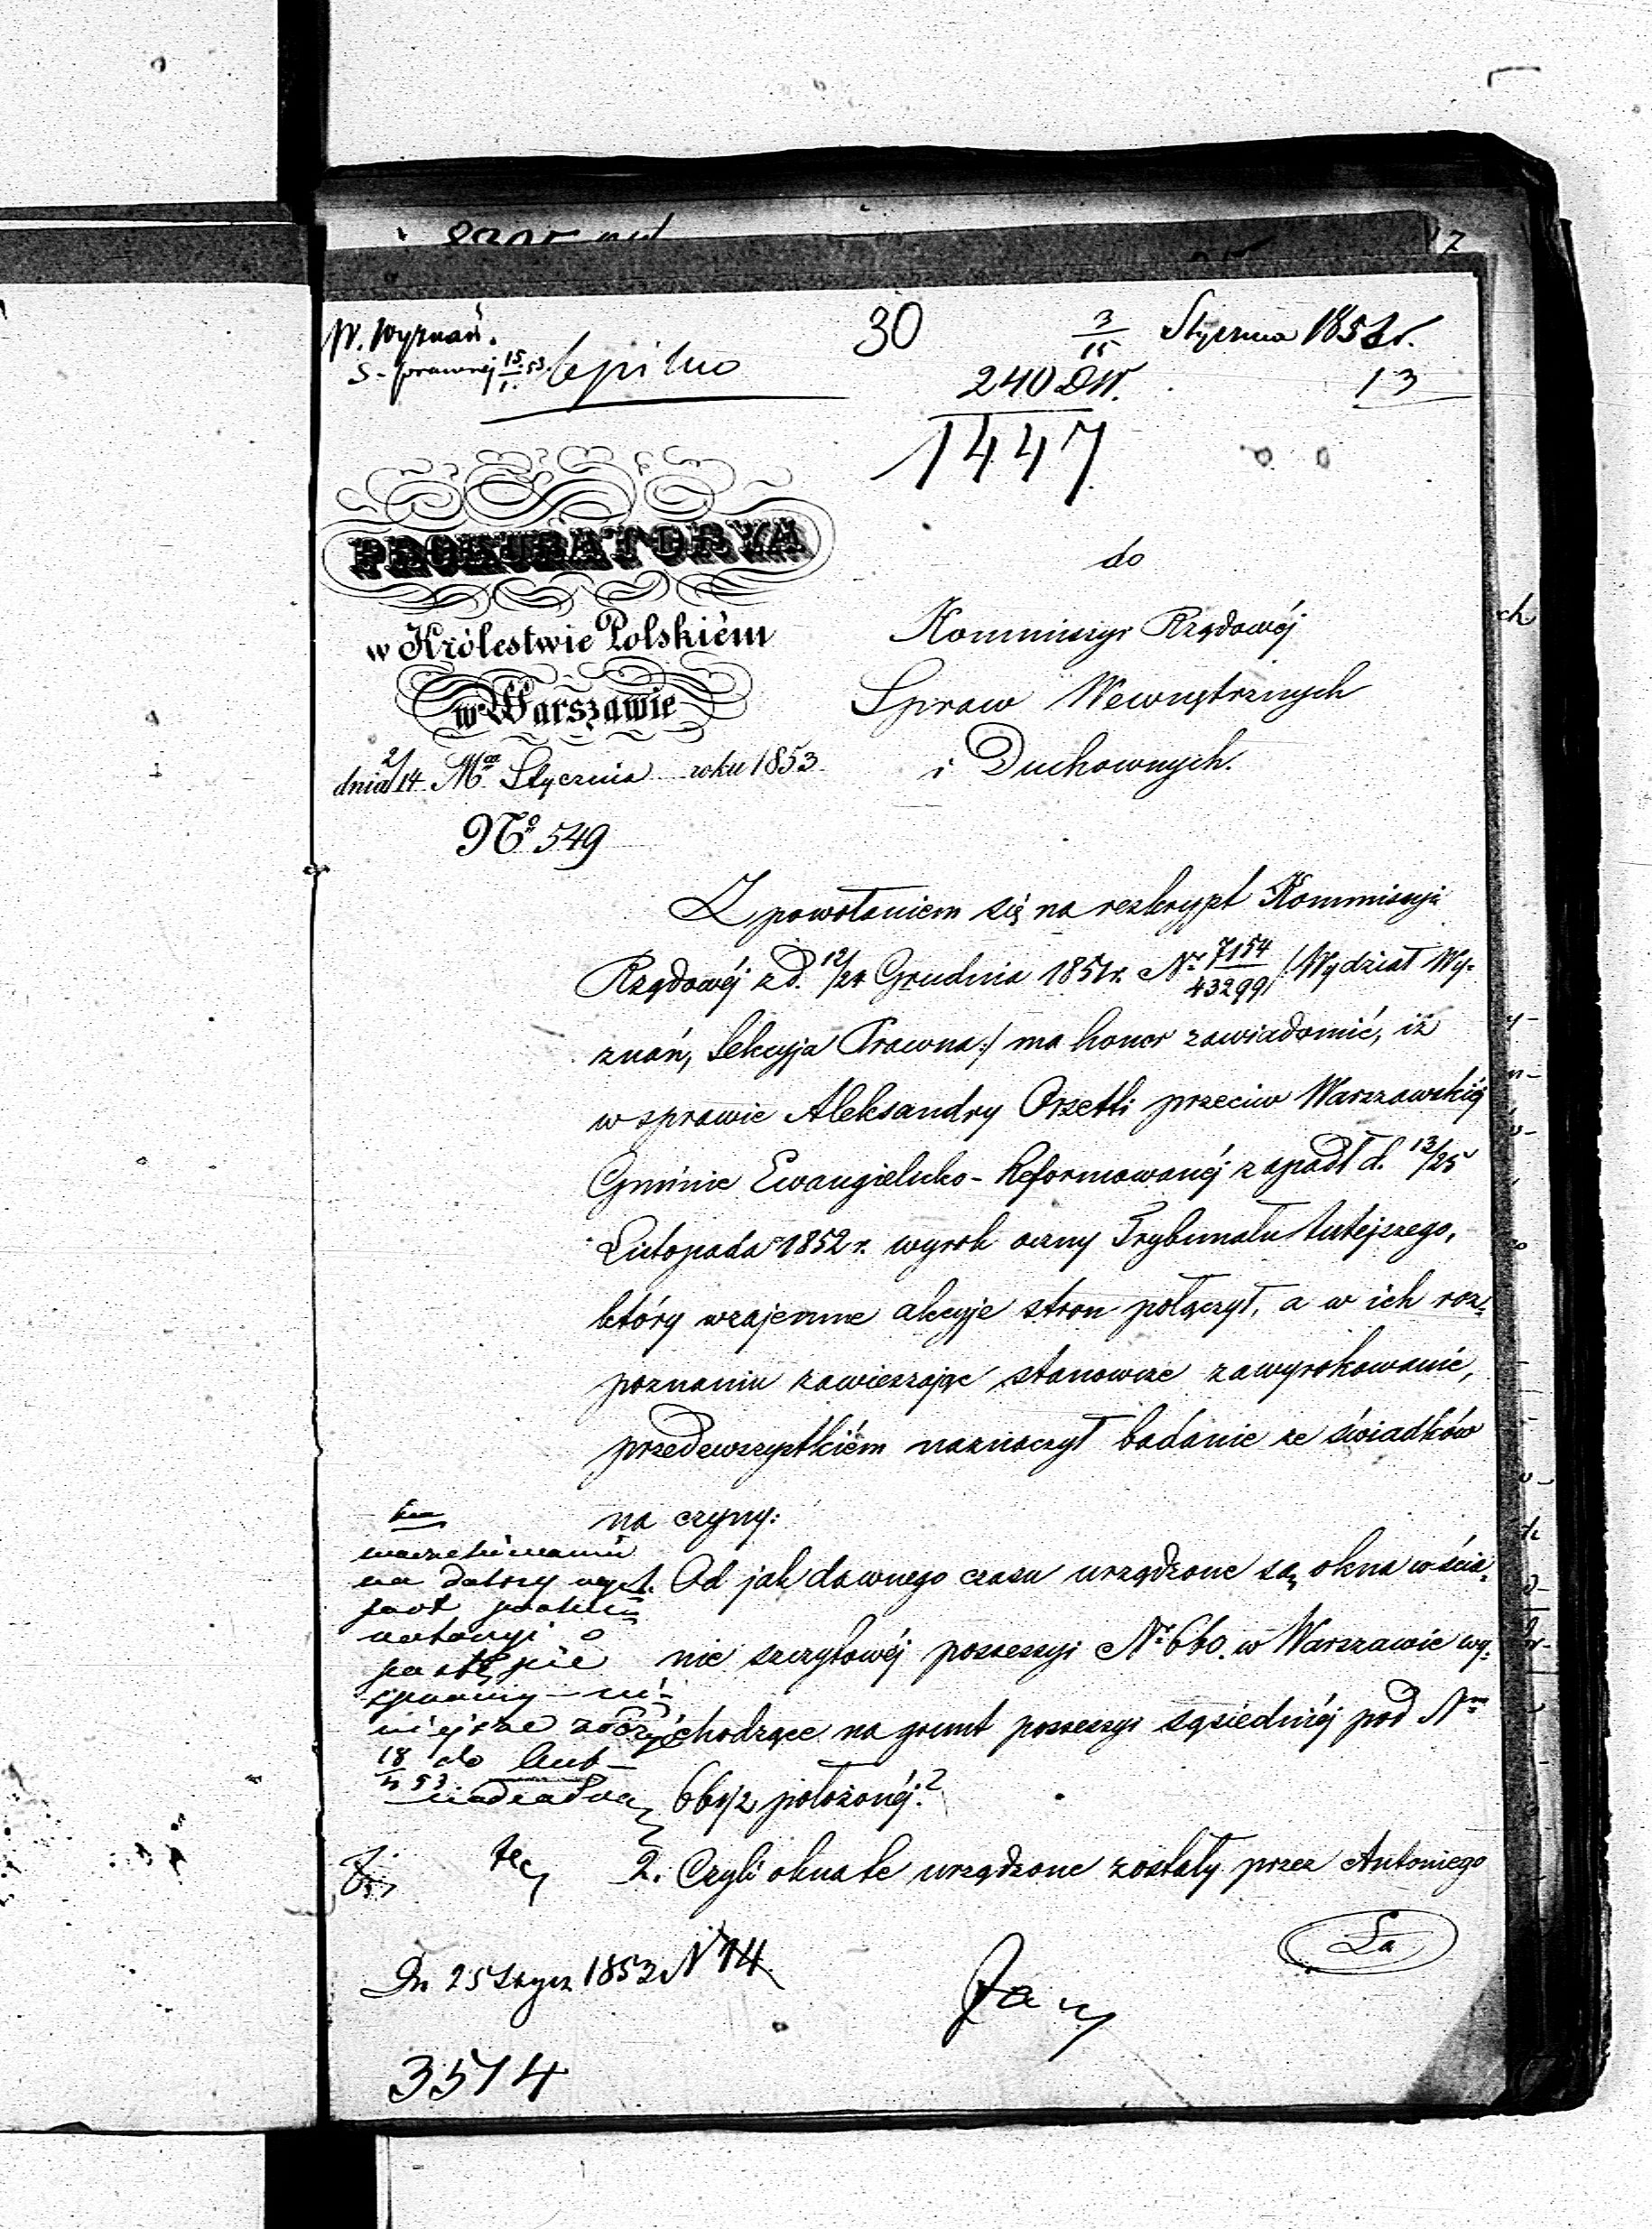 W. Wyznań.
S. prawnej 15/1. 53. pilno
30
3/15 Stycznia 1853 r.
240 DW.
13
1447
PROKURATORYA
w Królestwie Polskiém
w Warszawie
dnia 2/14 Mca Stycznia roku 1853
No 549
do
Kommissyi Rządowéj
Spraw Wewnętrznych
i Duchownych.
Z powołaniem się na reskrypt Kommissyi
Rządowéj z d. 12/24 Grudnia 1851 r. Nr 7154/43299 /:Wydział Wy-
znań, Sekcyja Prawna:/ ma honor zawiadomić, iż
w sprawie Aleksandry Orsetti przeciw Warszawskiéj
Gminie Ewangielicko-Reformowanéj zapadł d. 13/25
Listopada 1852 r. wyrok oczny Trybunału tutejszego,
który wzajemne akcyje stron połączył, a w ich roz-
poznaniu zawieszając stanowcze zawyrokowanie,
przedewszystkiém naznaczył badanie ze świadków
na czyny:
1. Od jak dawnego czasu urządzone są okna w ścia-
nie szczytowéj possessyi Nr 660. w Warszawie wy-
chodzące na grunt possessyi sąsiedniéj pod Nrm
660/2 położonéj?
2. Czyli okna te urządzone zostały przez Antoniego
w oczekiwaniu
na dalszy
o
postępie
sprawy - ni-
niejsze złożyć
18/1 53. do Akt
Dn 25 Stycz 1853 N 14
3514